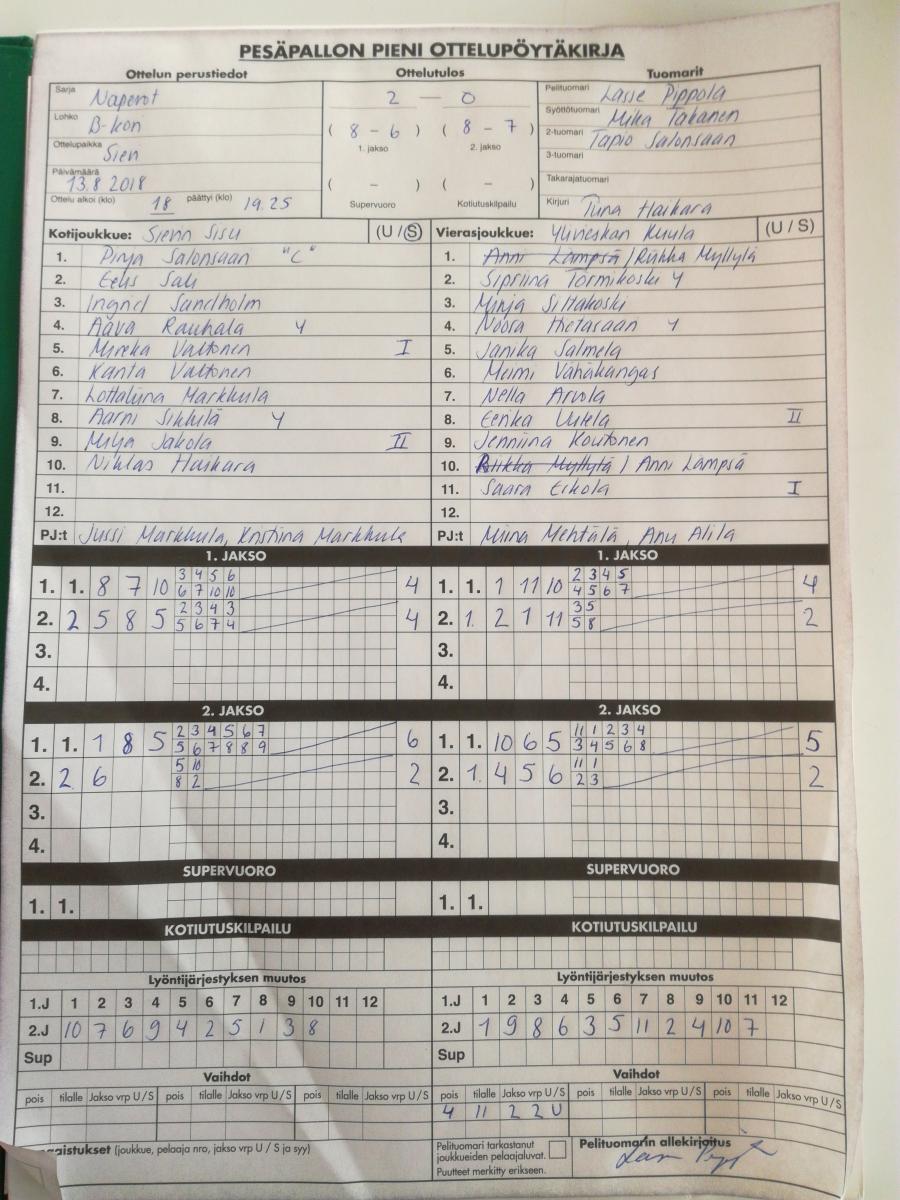 PESÄPALLON PIENI OTTELUPÖYTÄKIRJA
Ottelun perustiedot Ottelutulos Tuomarit
Sarja Naperot
Lohko B-kon
Ottelupaikka Sievi
Päivämäärä 13.8 2018
Ottelu alkoi (klo) 18 päättyi (klo) 19.25
2 – 0
( 8 - 6 ) ( 8 - 7 )
1. jakso 2. jakso
( - ) ( - )
Supervuoro Kotiutuskilpailu
Pelituomari Lasse Pippola
Syöttötuomari Mika Takanen
2-tuomari Tapio Salonsaari
3-tuomari
Takarajatuomari
Kirjuri Tuna Haikara
Kotijoukkue: Sievin Sisu (U / S)
1. Pinja Salonsaari "C"
2. Eelis Sali
3. Ingrid Sandholm
4. Aava Rauhala Y
5. Mireka Valtonen I
6. Kanta Valtonen
7. Lottaliina Markkula
8. Aarni Sikkilä Y
9. Milja Jakola II
10. Niklas Haikara
11.
12.
PJ:t Jussi Markkula, Kristiina Markkula
Vierasjoukkue: Ylivieskan Kuula (U / S)
1. Anni Lämpsä / Riikka Myllylä
2. Sipriina Törmikoski Y
3. Minja Siltakoski
4. Noora Hietasaari Y
5. Janika Salmela
6. Meimi Vähäkangas
7. Nella Arvola
8. Eerika Uitela II
9. Jenniina Koutonen
10. Riikka Myllylä / Anni Lämpsä
11. Saara Erkola I
12.
PJ:t Miina Mehtälä, Anu Alila
1. JAKSO 1. JAKSO
3 4 5 6 2 3 4 5
1. 1. 8 7 10 6 7 10 10 4 1. 1. 1 11 10 4 5 6 7 4
2 3 4 3 3 5
2. 2 5 8 5 5 6 7 4 4 2. 1. 2 1 11 5 8 2
3. 3.
4. 4.
2. JAKSO 2. JAKSO
2 3 4 5 6 7 11 1 2 3 4
1. 1. 1 8 5 5 6 7 8 8 9 6 1. 1. 10 6 5 3 4 5 6 8 5
5 10 11 1
2. 2. 6 8 2 2 2. 1. 4 5 6 2 3 2
3. 3.
4. 4.
SUPERVUORO SUPERVUORO
1. 1. 1. 1.
KOTIUTUSKILPAILU KOTIUTUSKILPAILU
Lyöntijärjestyksen muutos Lyöntijärjestyksen muutos
1.J 1 2 3 4 5 6 7 8 9 10 11 12 1.J 1 2 3 4 5 6 7 8 9 10 11 12
2.J 10 7 6 9 4 2 5 1 3 8 2.J 1 9 8 6 3 5 11 2 4 10 7
Sup Sup
Vaihdot Vaihdot
pois tilalle Jakso vrp U/S pois tilalle Jakso vrp U/S pois tilalle Jakso vrp U/S pois tilalle Jakso vrp U/S pois tilalle Jakso vrp U/S pois tilalle Jakso vrp U/S
4 11 2 2 U
aistukset (joukkue, pelaaja nro, jakso vrp U / S ja syy)
Pelituomari tarkastanut
joukkueiden pelaajaluvat.
Puutteet merkitty erikseen.
Pelituomarin allekirjoitus